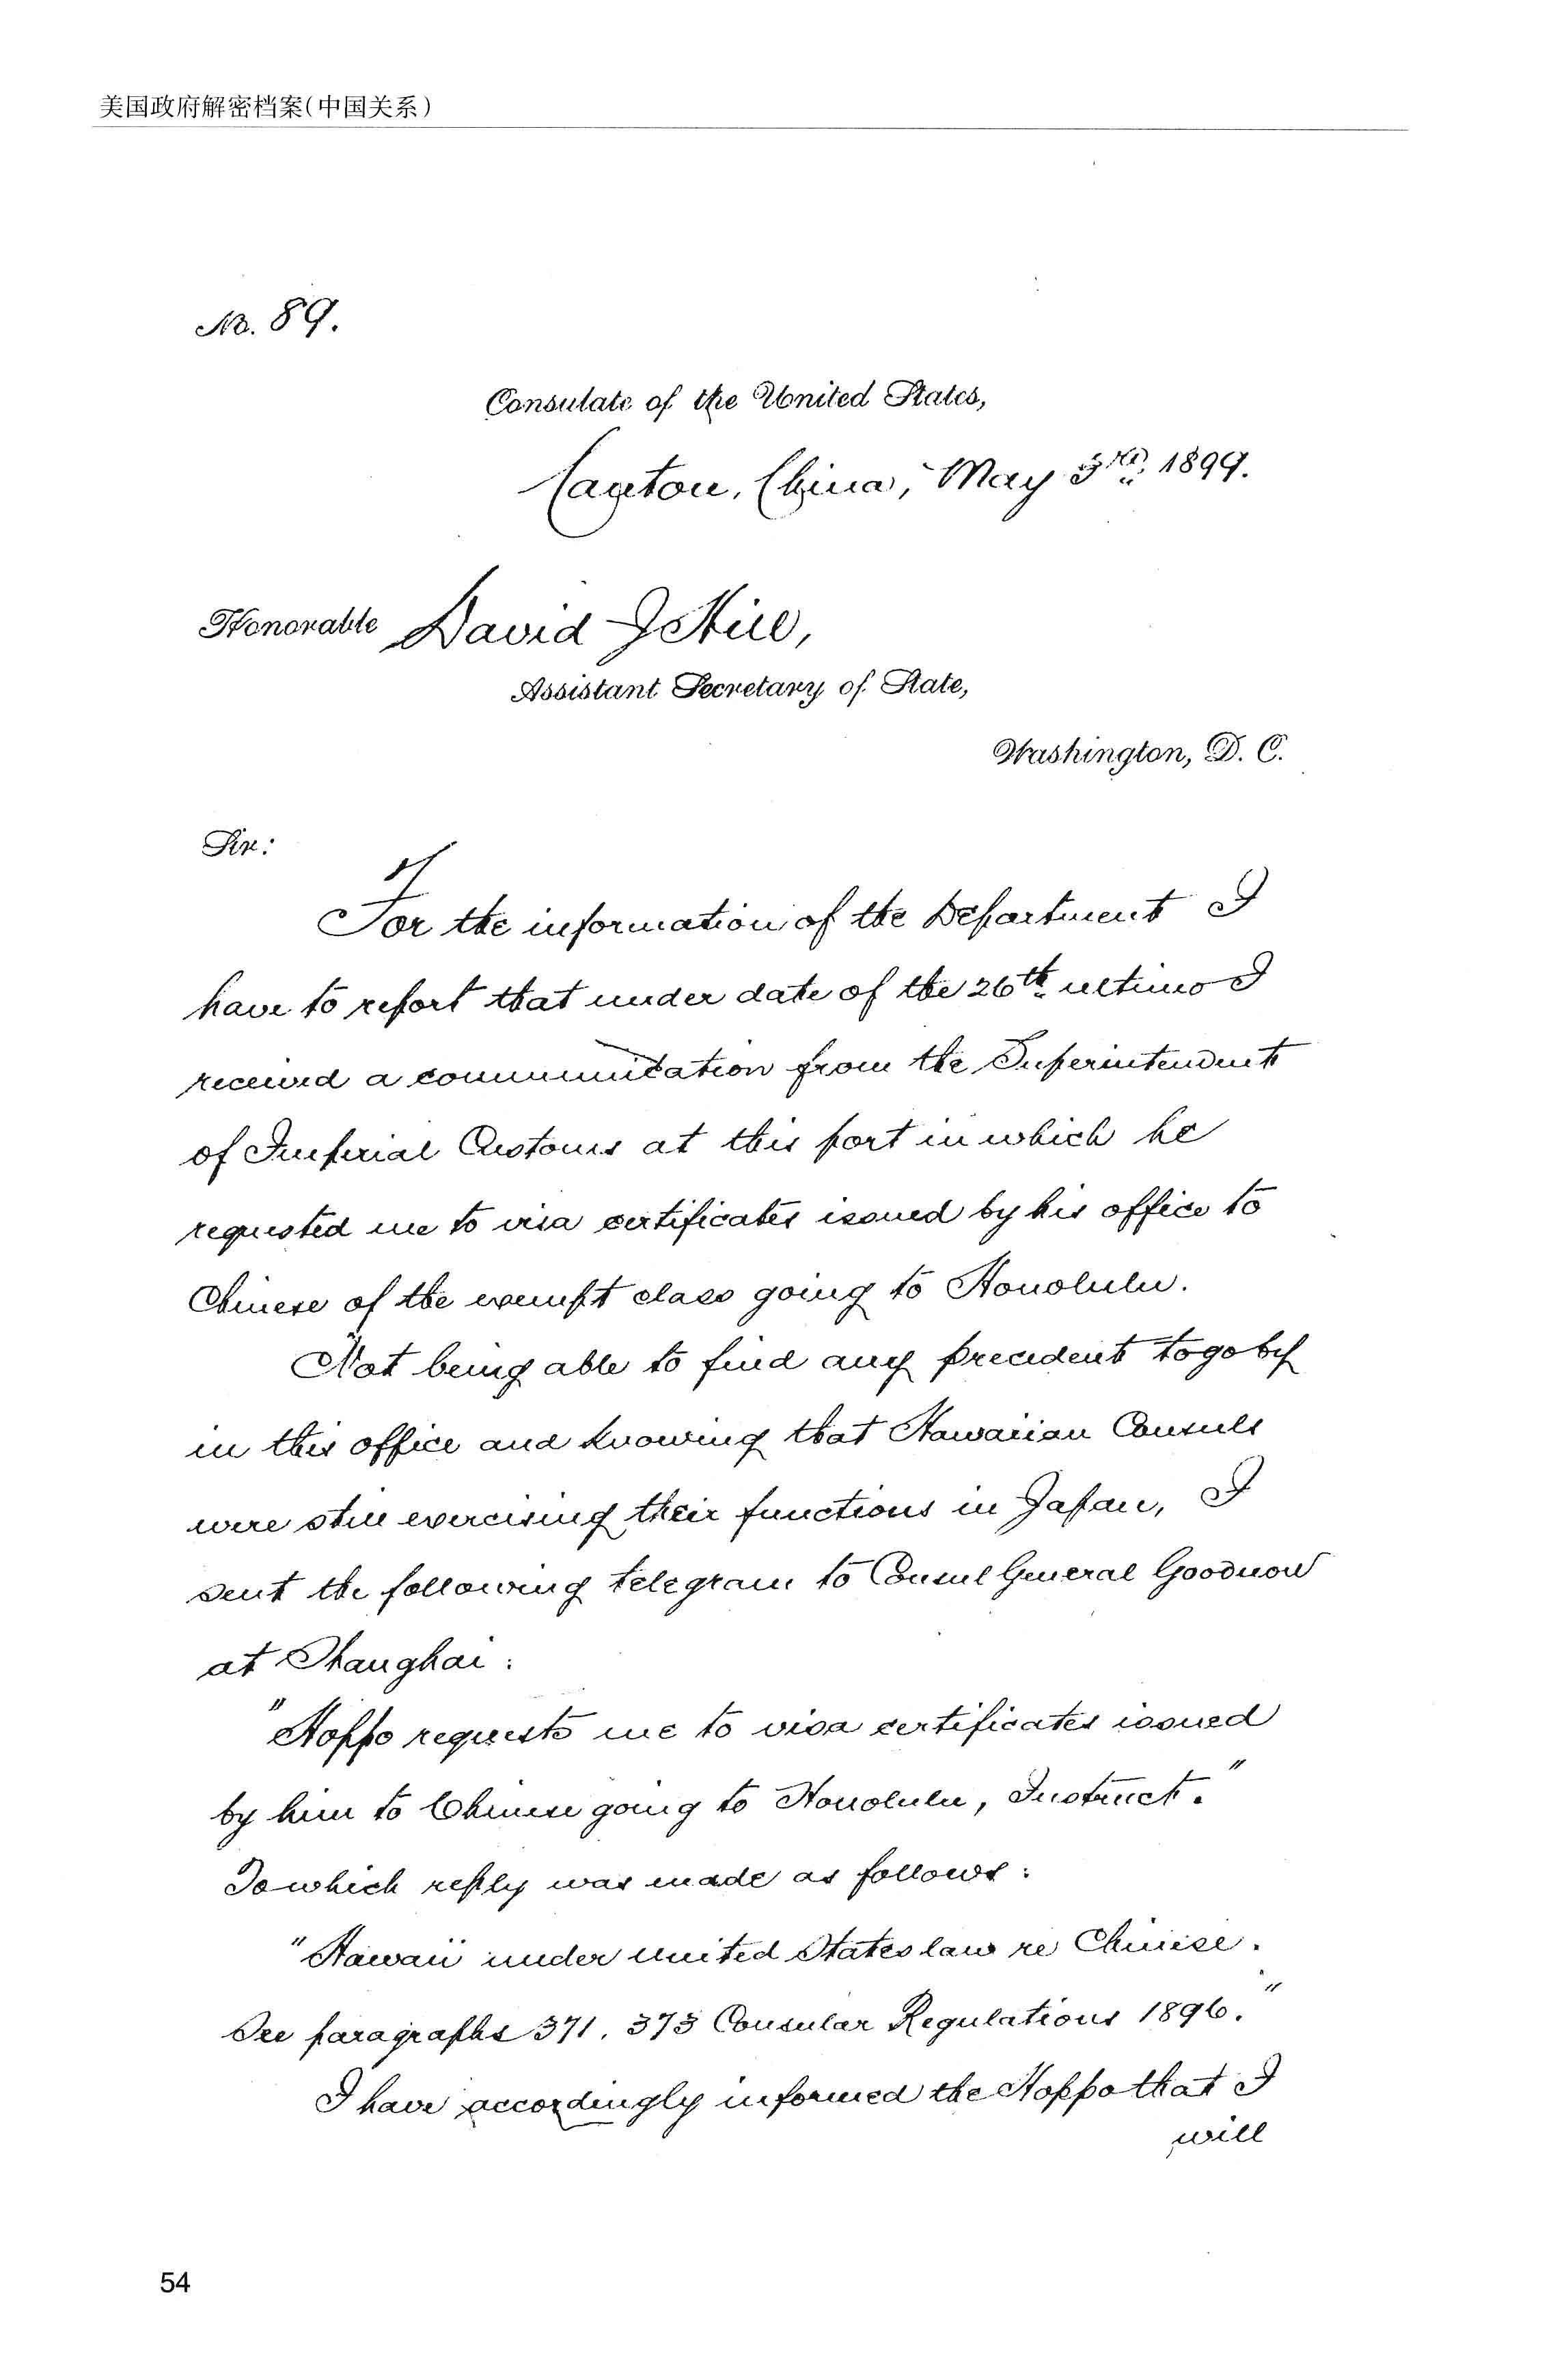 美国政府解密档案(中国关系)
No. 89.
Consulate of the United States,
Canton, China, May 3rd, 1899.
Honorable David J Hill,
Assistant Secretary of State,
Washington, D. C.
Sir:
For the information of the Department I
have to report that under date of the 26th ultimo I
received a communication from the Superintendent
of Imperial Customs at this port in which he
requested me to visa certificates issued by his office to
Chinese of the exempt class going to Honolulu.
Not being able to find any precedent to go by
in this office and knowing that Hawaiian Consuls
were still exercising their functions in Japan, I
sent the following telegram to Consul General Goodnow
at Shanghai:
"Hoppo requests me to visa certificates issued
by him to Chinese going to Honolulu, Instruct."
To which reply was made as follows:
"Hawaii under United States law re Chinese.
See paragraphs 371, 373 Consular Regulations 1896."
I have accordingly informed the Hoppo that I
will
54